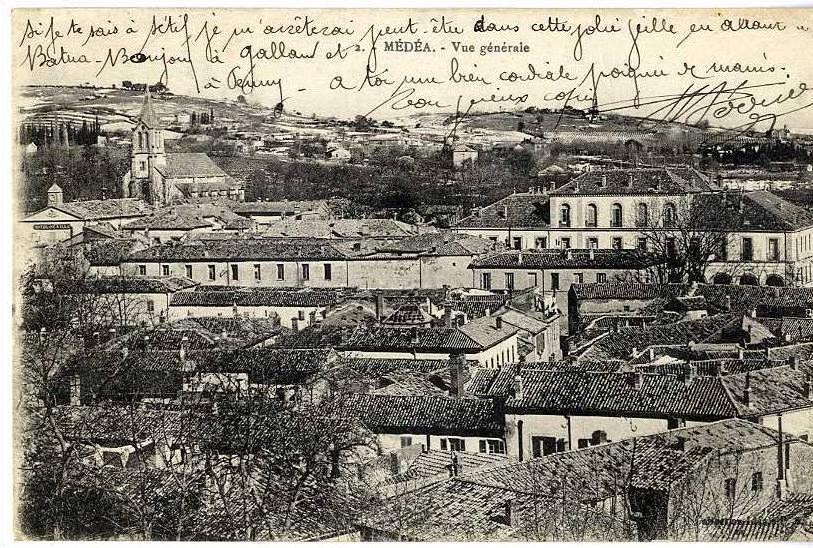 si je te sais à Sétif je m'arrêterai peut-être dans cette jolie ville en allant à
Batna - Bonjour à Galland et
2. MÉDÉA. - Vue générale
à Penny - a toi une bien cordiale poignée de mains.
Ton vieux copin
HOTEL DE VILLE